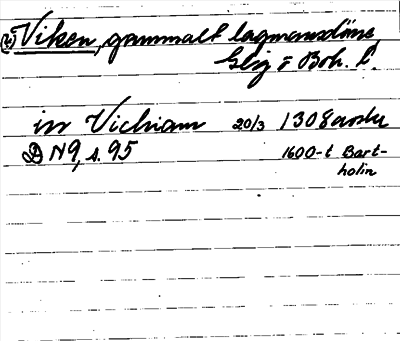 Viken, gammalt lagmansdöme
i Boh. l.
in Vichiam 20/3 1308 avskr
DN 9, s. 95 1600-t Bart-
holin